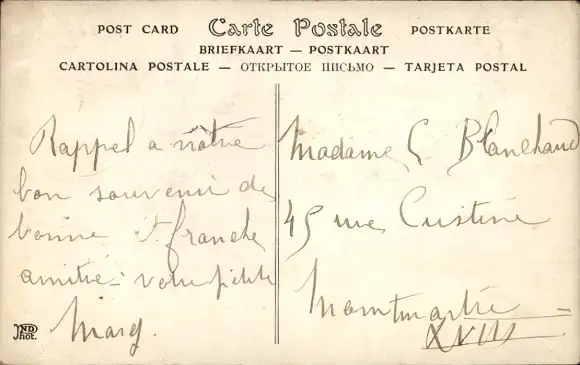 POST CARD Carte Postale POSTKARTE
BRIEFKAART — POSTKAART
CARTOLINA POSTALE — ОТКРЫТОЕ ПИСЬМО — TARJETA POSTAL
Rappel a nôtre
bon souvenir de
bonne et franche
amitié - votre petite
Marg.
ND
Phot.
Madame G Blanchard
45 rue Custine
Montmartre
XVIII